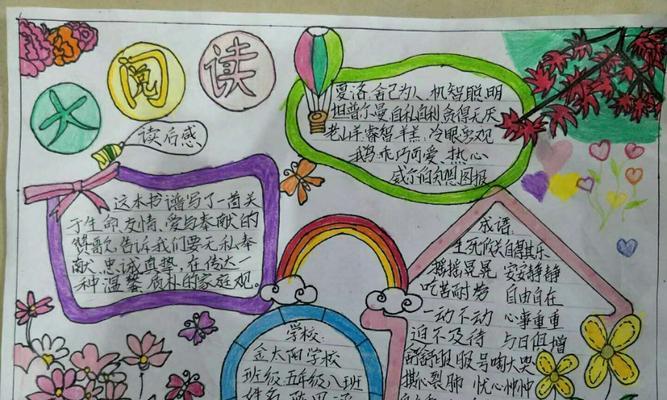 大阅读
读后感
夏洛舍己为人机智聪明
坦普尔曼自私自利贪得无厌
老山羊睿智羊羔冷眼旁观
我乖巧可爱热心
威尔伯知恩图报
这本书谱写了一首关
于生命友情,爱与奉献的
赞歌,告诉我们要无私奉
献,忠诚真挚,在传达一
种温馨质朴的家庭观。
学校:
金太阳学校
班级五年级八班
姓名
成语:
生死攸关自得其乐
摇摇晃晃 安安静静
吃苦耐劳 自由自在
一动不动 心事重重
迫不及待 与日俱增
舒舒服服号啕大哭
撕心裂肺 忧心忡忡